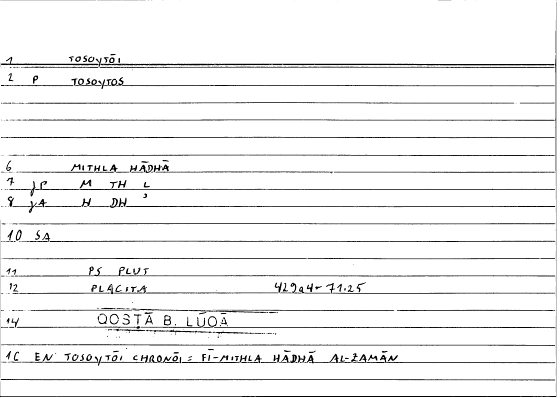 1 TOSOyTŌI
2 P TOSOyTOS
6 MITHLA HĀDHĀ
7 jP M TH L
8 jA H DH ʾ
10 SA
11 PS PLUT
12 PLACITA 429a4-71.25
14 QOSṬĀ B. LŪQĀ
16 EN TOSOyTŌI CHRONŌI = FĪ-MITHLA HĀDHĀ AL-ZAMĀN